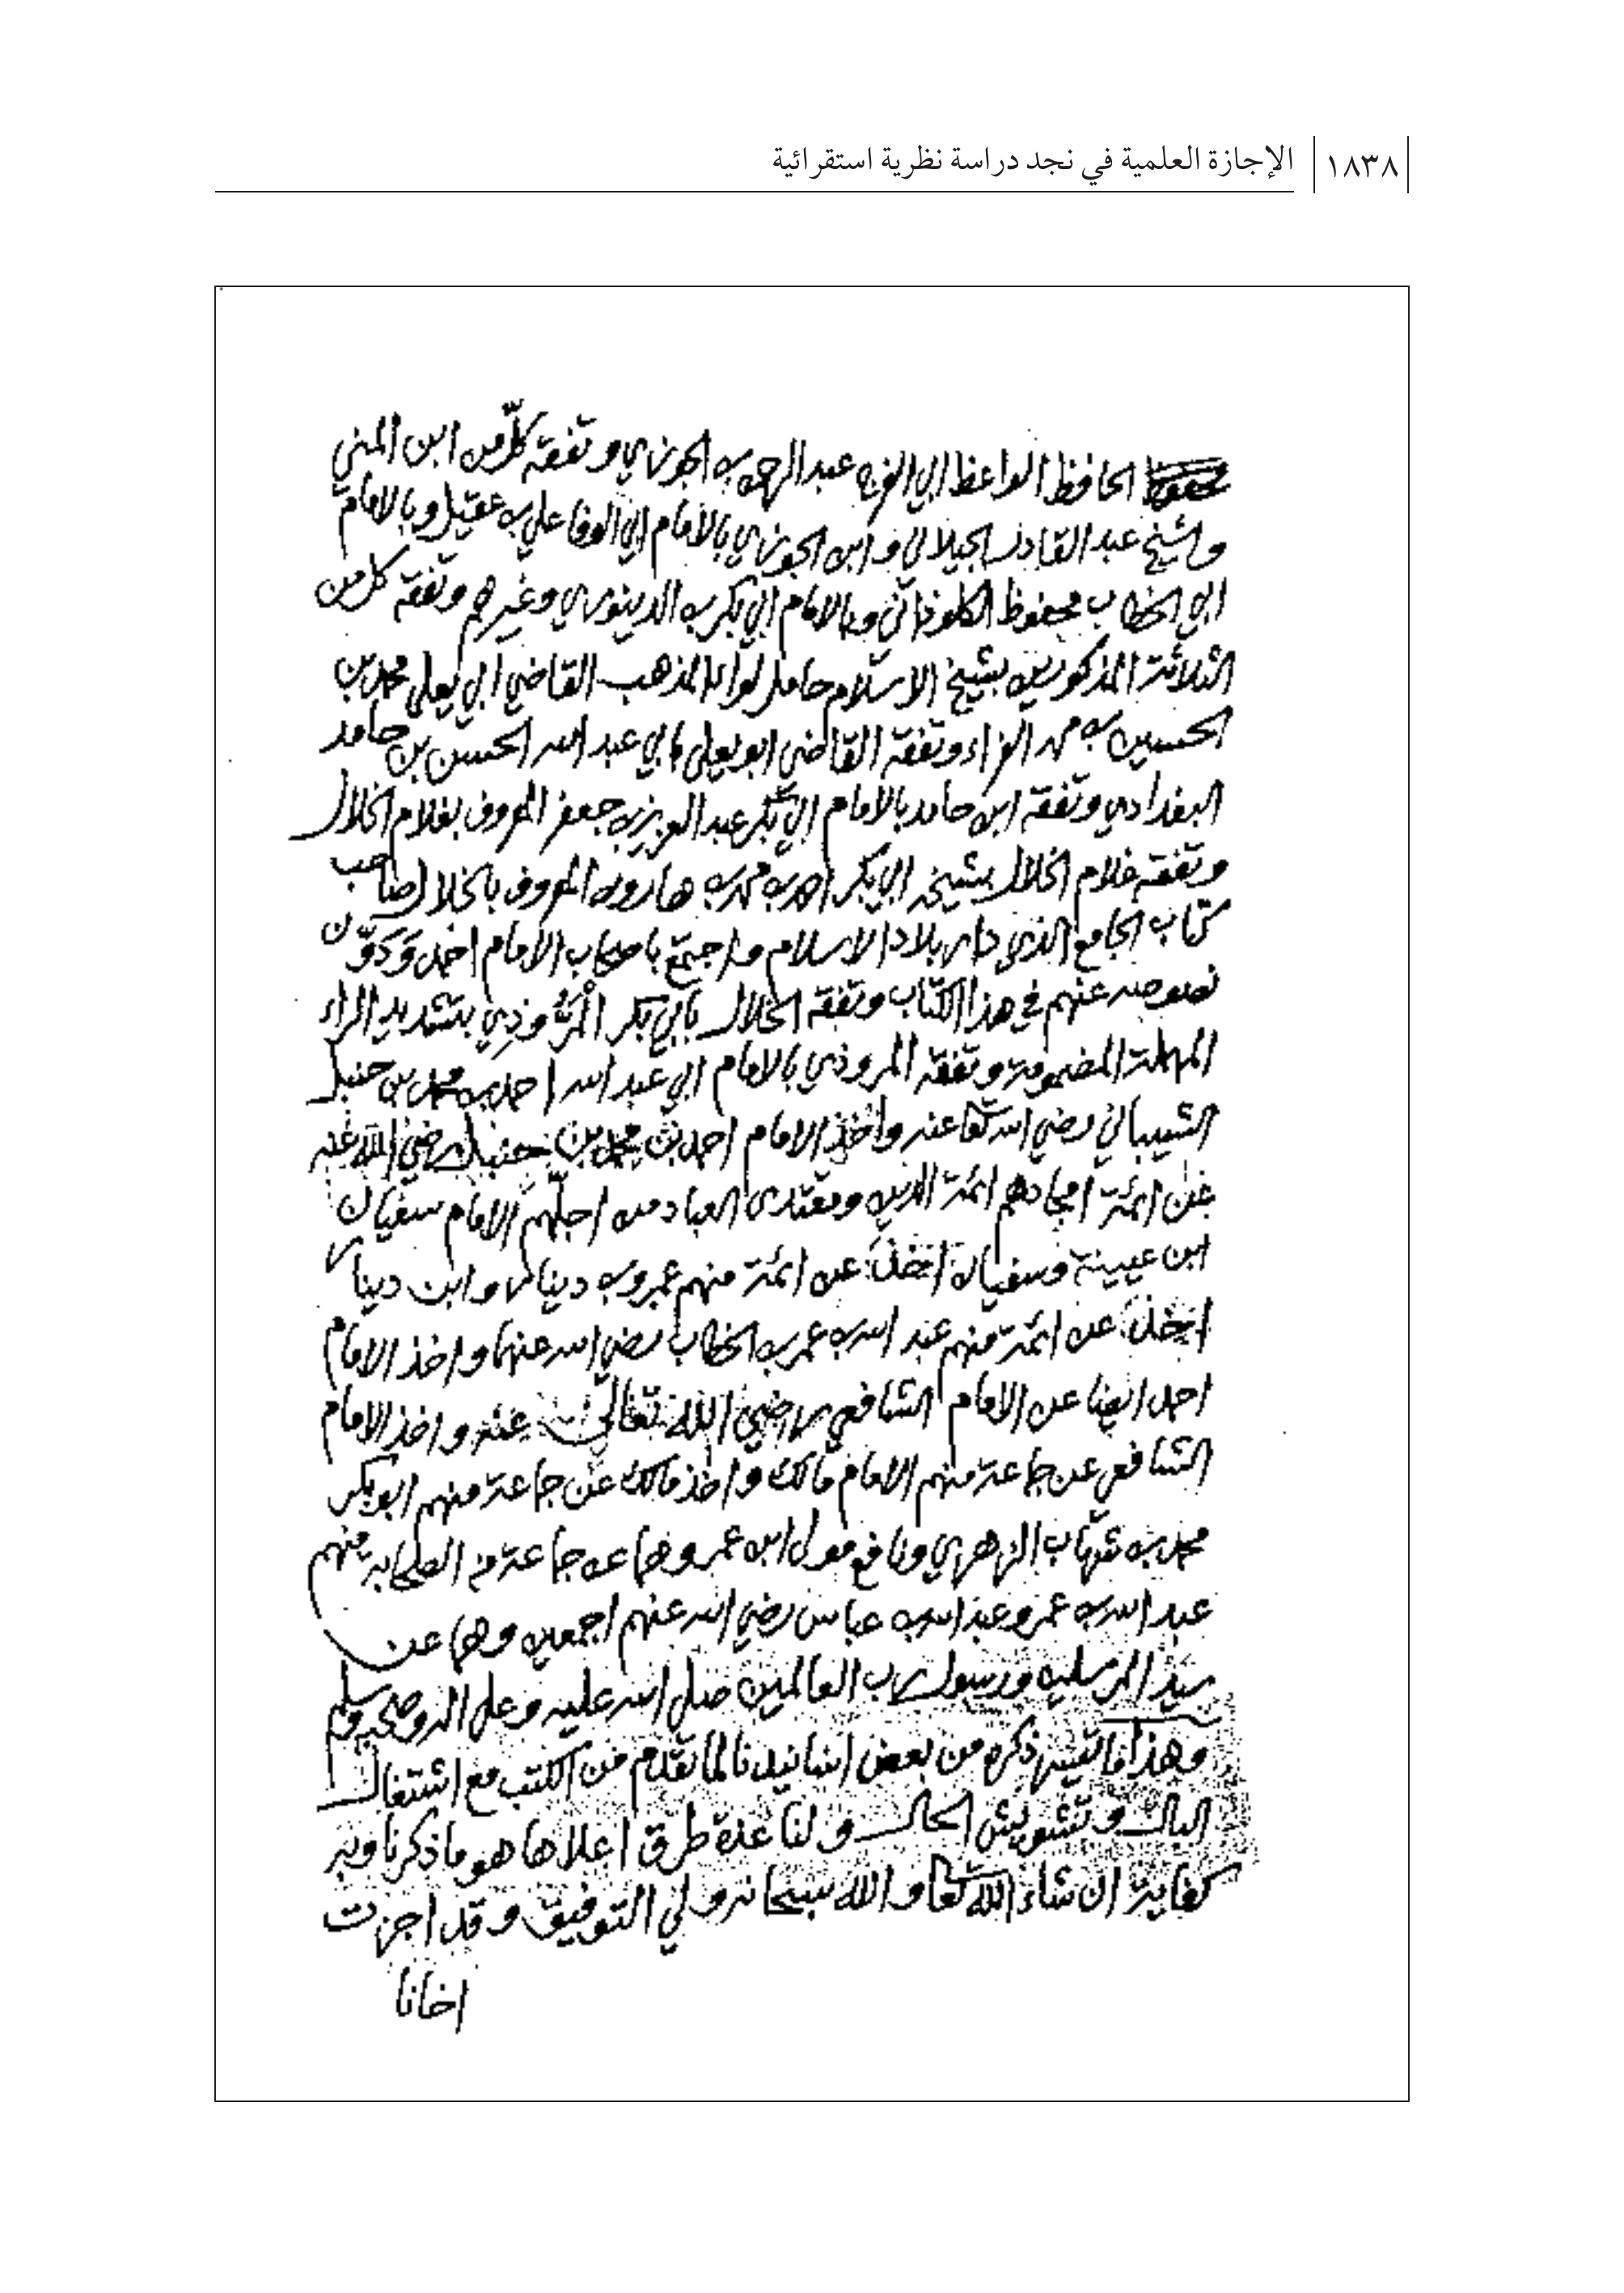 ١٨٣٨ الإجازة العلمية في نجد دراسة نظرية استقرائية
الحافظ الواعظ ابي الفرج عبد الرحمن بن الجوزي وتفقه كلّ من ابن المني
والشيخ عبد القادر الجيلاني و ابن الجوزي بالامام ابي الوفا علي بن عقيل وبالامام
ابي الخطاب محفوظ الكلوذاني وبالامام ابي بكر بن الدينوري وغيرهم وتفقه كل من
الثلاثة المذكورين بشيخ الاسلام حامل لواء المذهب القاضي ابي يعلى محمد بن
الحسين بن محمد الفراء وتفقه القاضي ابو يعلى بابي عبد الله الحسن بن حامد
البغدادي وتفقه ابن حامد بالامام ابي بكر عبد العزيز بن جعفر المعروف بغلام الخلال
وتفقه غلام الخلال بشيخه ابي بكر احمد بن محمد بن هارون المعروف بالخلال صاحب
كتاب الجامع الذي دار بلاد الاسلام واجتمع باصحاب الامام احمد وَدَوَّن
نصوصه عنهم في هذا الكتاب وتفقه الخلال بابي بكر المرُّوذِي بتشديد الراء
المهملة المضمومة وتفقه المروذي بالامام ابي عبد الله احمد بن محمد بن حنبل
الشيباني رضي الله تعا عنه واخذ الامام احمد بن محمد بن حنبل رضي الله عنه
عن ائمة امجادهم ائمة الدين ومقتدى العباد من اجلّهم الامام سفيان
ابن عيينة وسفيان اخذ عن ائمة منهم عمرو بن دينار و ابن دينار
اخذ عن ائمة منهم عبد الله بن عمر بن الخطاب رضي الله عنهما واخذ الامام
احمد ايضا عن الامام الشافعي رضي الله تعالى عنه واخذ الامام
الشافعي عن جماعة منهم الامام مالك واخذ مالك عن جماعة منهم ابو بكر
محمد بن شهاب الزهري ونافع مولى ابن عمر وهما عن جماعة من الصحابة منهم
عبد الله بن عمر وعبد الله بن عباس رضي الله عنهم اجمعين وهما عن
سيد المرسلين ورسول رب العالمين صلى الله عليه وعلى اله وصحبه وسلم
وهذا ما تيسر ذكره من بعض اسانيدنا لما تقدم من الكتب مع اشتغال
البال وتشويش الحال و لنا عدة طرق اعلاها هو ما ذكرنا وبه
كفاية ان شاء الله تعا والله سبحانه ولي التوفيق وقد اجزت
اخانا